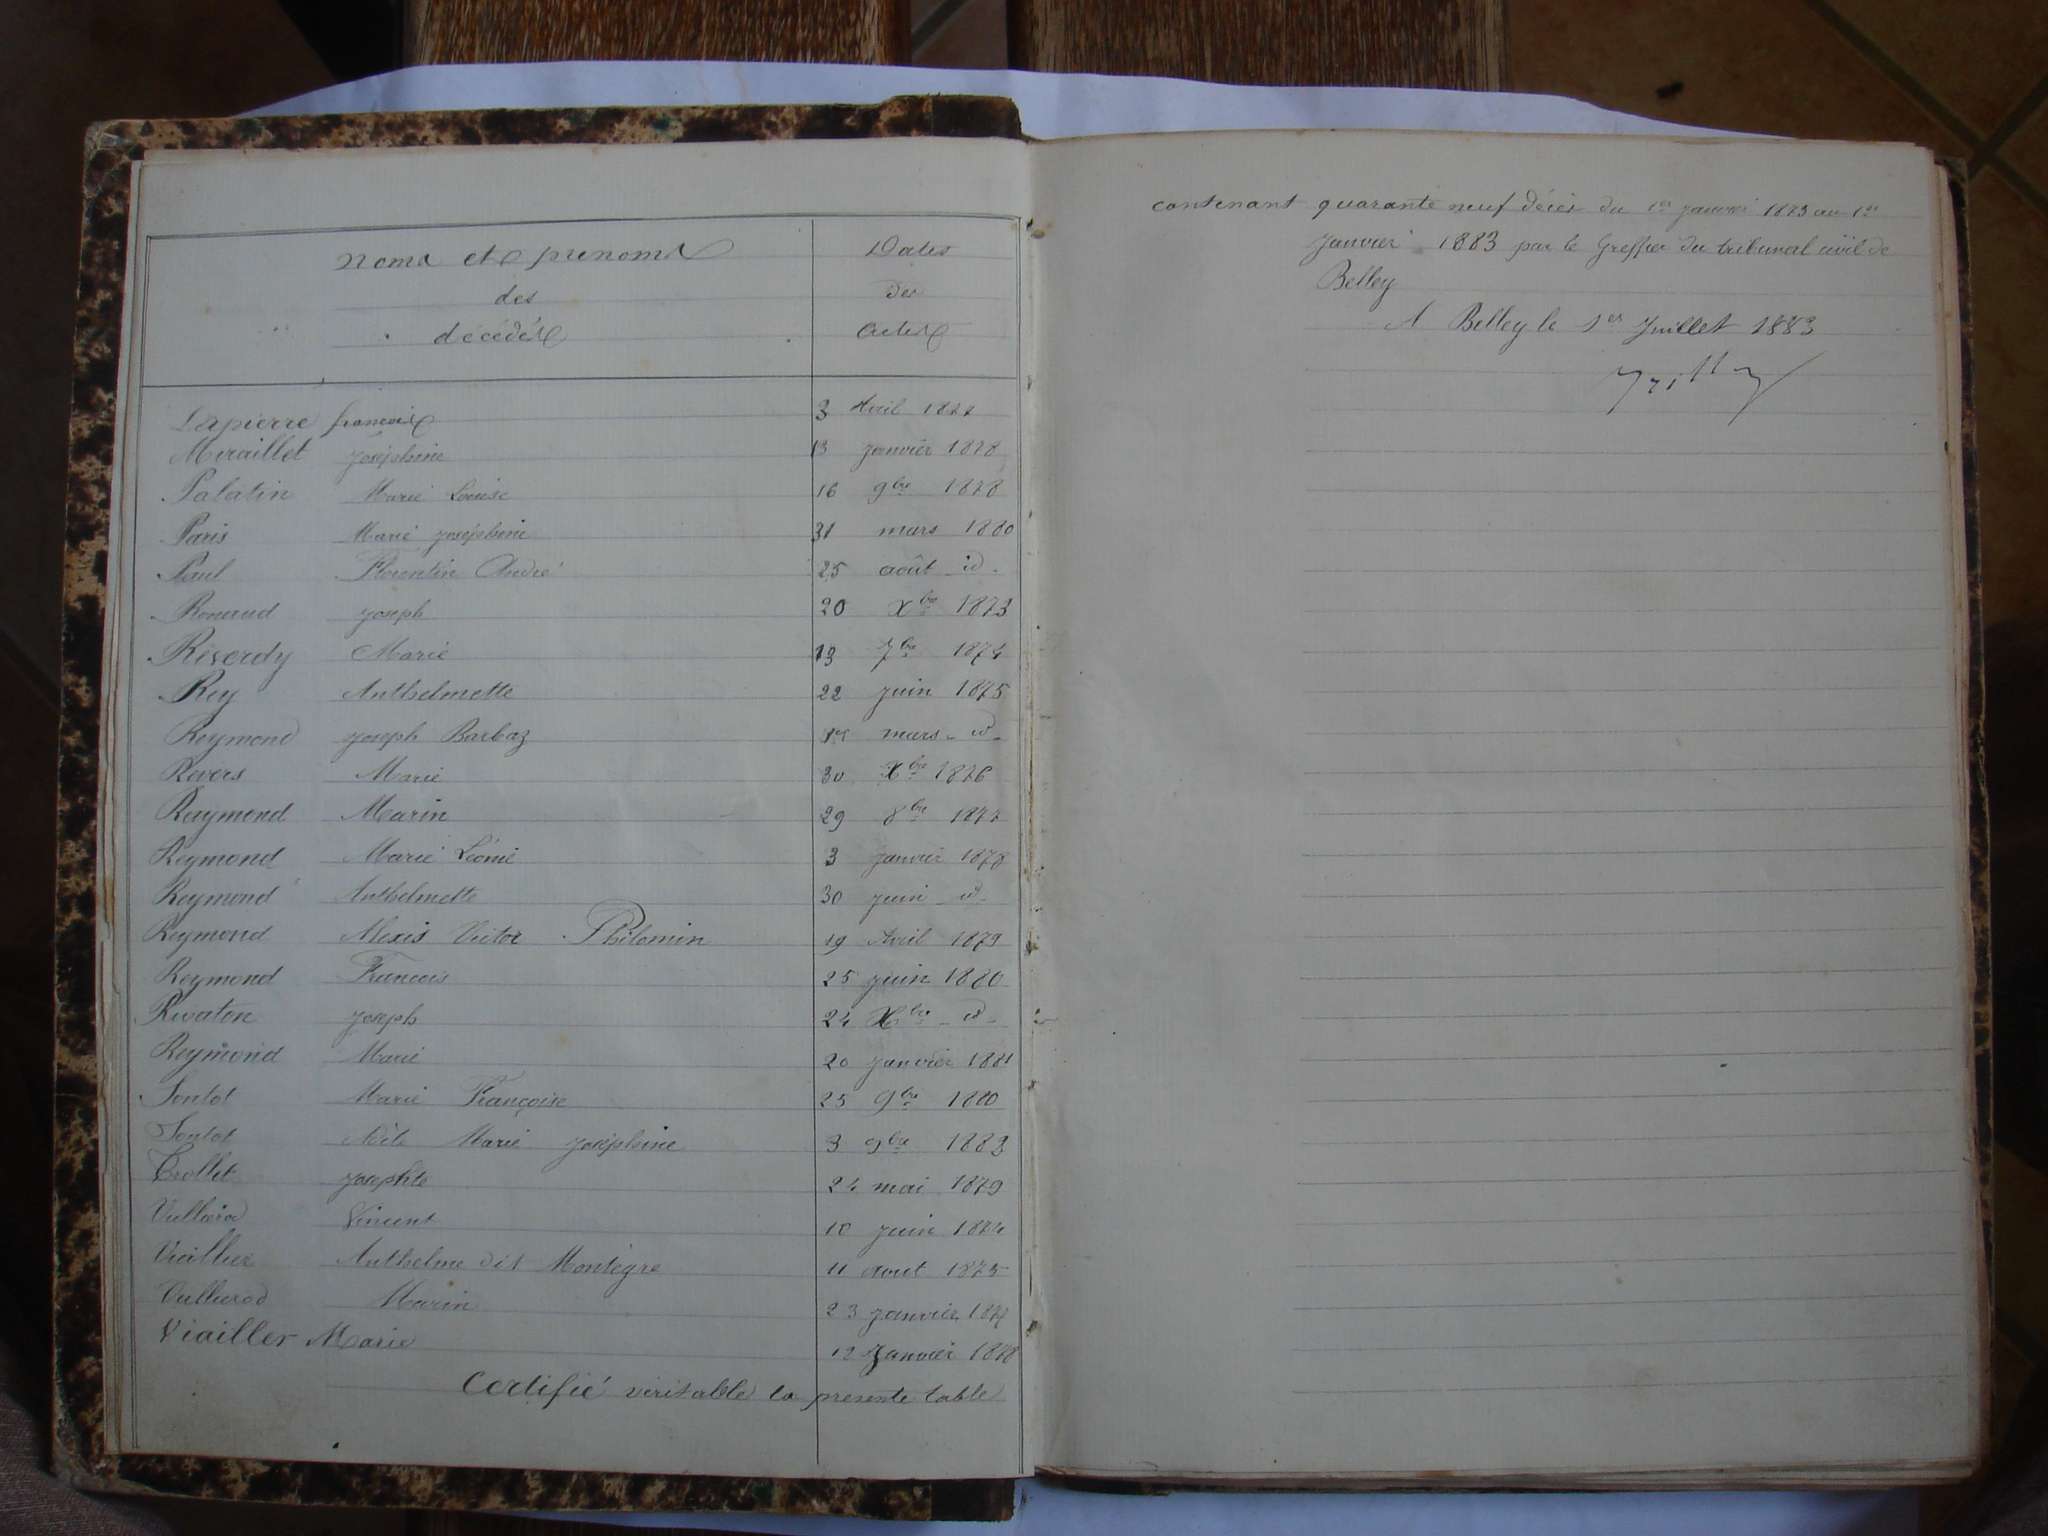 noms et prénoms
des
décédés
Dates
des
actes
Lapierre françois 3 Avril 1877
Miraillet Joséphine 13 janvier 1878
Palatin Marie Louise 16 9bre 1878
Paris Marie joséphine 31 mars 1880
Paul Florentin André 25 août - id -
Renaud joseph 20 Xbre 1873
Réverdy Marie 13 7bre 1874
Rey Anthelmette 22 juin 1875
Reymond joseph Barbaz mars - id -
Revers Marie 30 Xbre 1876
Raymond Marin 29 8bre 1877
Reymond Marie Léonie 3 janvier 1878
Reymond Anthelmette 30 juin - id -
Reymond Alexis Victor Philomin 19 Avril 1879
Reymond François 25 juin 1880
Rivaton joseph 24 Xbre - id -
Reymond Marie 20 janvier 1881
Sontot Marie Françoise 25 9bre 1880
Sontot Adèle Marie joséphine 3 9bre 1883
Trollet josephte 24 mai 1879
Vullierod Vincent 10 juin 1874
Viallier Anthelme dit Montègre 11 aout 1875
Vullierod Marin 23 janvier 1877
Viailler Marie 12 Janvier 1878
Certifié véritable la présente table
contenant quarante neuf décès du 1er janvier 1873 au 1er
janvier 1883 par le Greffier du tribunal civil de
Belley
A Belley le 1er Juillet 1883